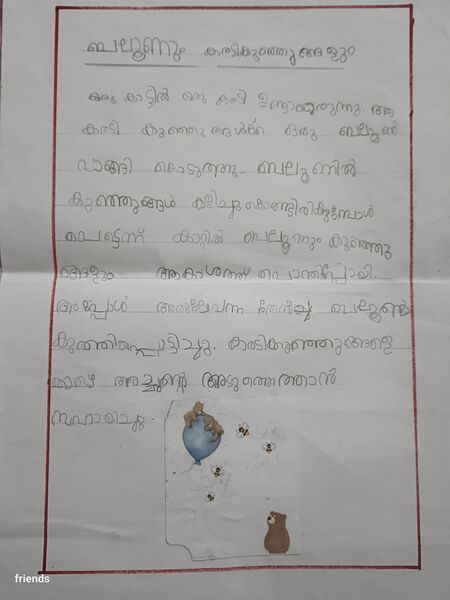 ബലൂണും കരടികുഞ്ഞുങ്ങളും
ഒരു കാട്ടിൽ ഒരു കരടി ഉണ്ടായിരുന്നു. ആ
കരടി കുഞ്ഞുങ്ങൾക്ക് ഒരു ബലൂൺ
വാങ്ങി കൊടുത്തു. ബലൂണിൽ
കുഞ്ഞുങ്ങൾ കളിച്ചുകൊണ്ടിരിക്കുമ്പോൾ
പെട്ടെന്ന് കാറ്റിൽ ബലൂണും കുഞ്ഞു
ങ്ങളും ആകാശത്ത് പൊന്തിപ്പോയി.
അപ്പോൾ അതിലേവന്ന തേനീച്ച ബലൂൺ
കുത്തിപ്പൊട്ടിച്ചു. കരടികുഞ്ഞുങ്ങളെ
താഴെ അച്ഛന്റെ അടുത്തെത്താൻ
സഹായിച്ചു.
friends